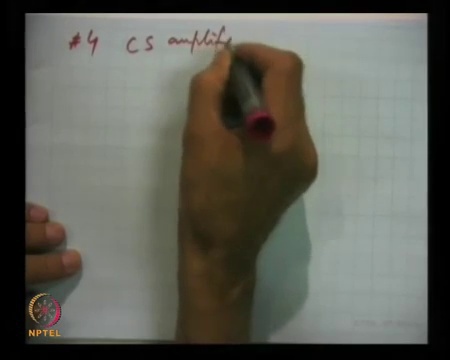 #4 CS amplif
NPTEL